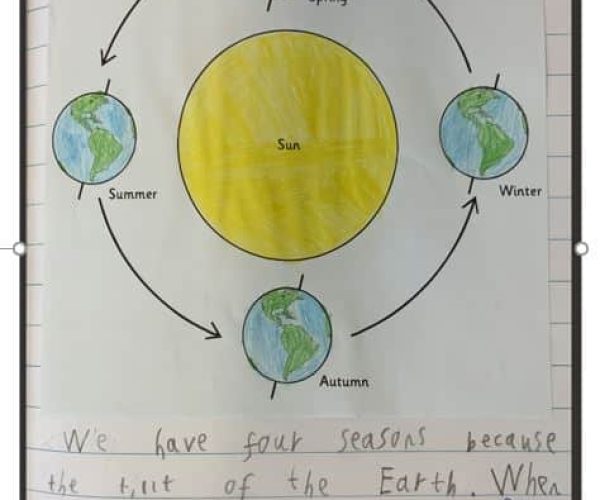 Spring
Sun
Summer
Winter
Autumn
We have four seasons because
the tilt of the Earth. When